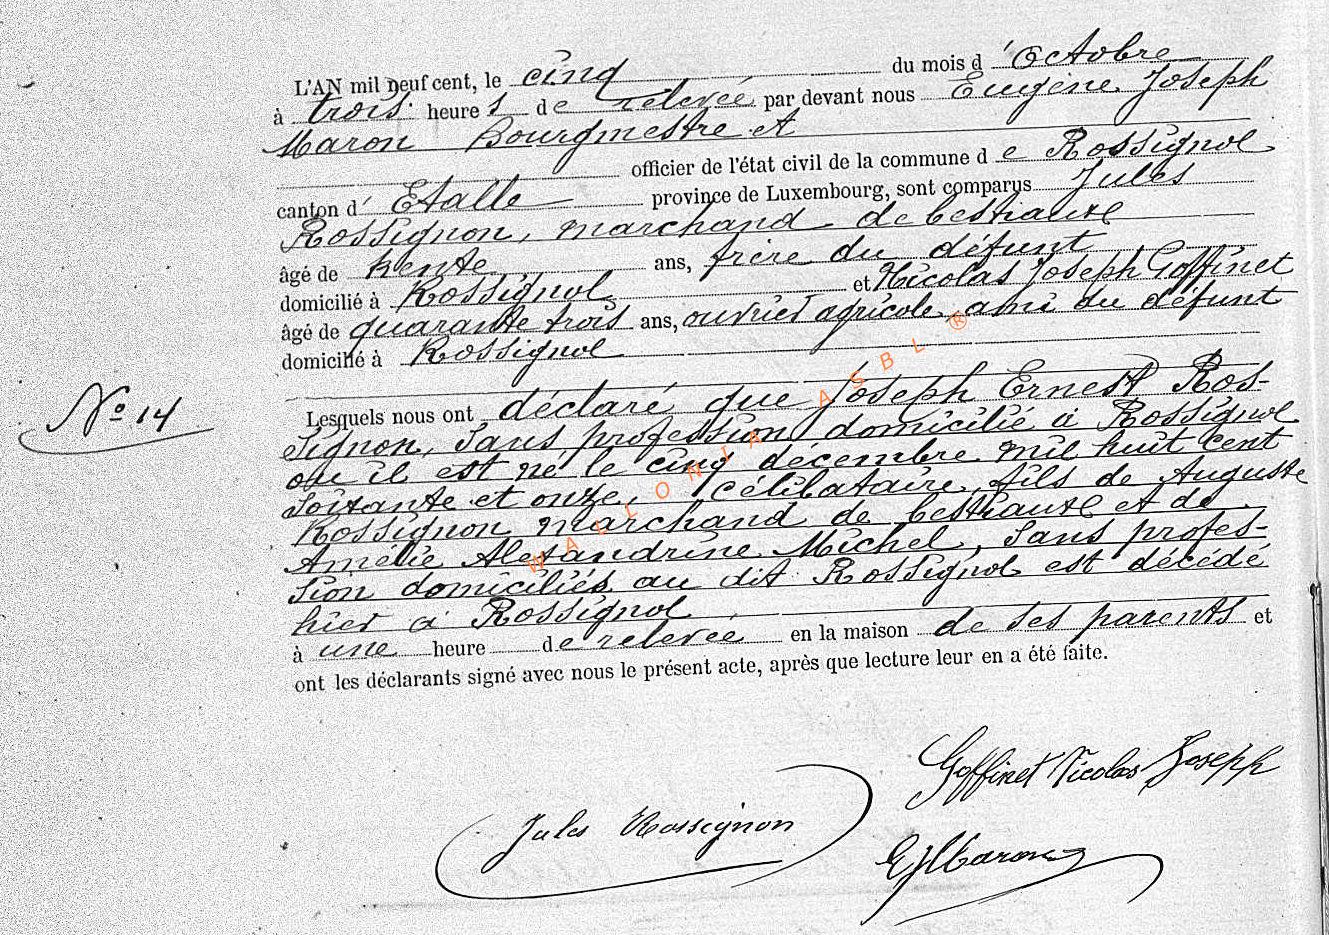 L'AN mil neuf cent, le cinq du mois d'Octobre
à trois heures de relevée par devant nous Eugène Joseph
Maron Bourgmestre et
officier de l'état civil de la commune de Rossignol
canton d'Etalle province de Luxembourg, sont comparus Jules
Rossignon, marchand de bestiaux
âgé de trente ans, frère du défunt
domicilié à Rossignol et Nicolas Joseph Goffinet
âgé de quarante trois ans, ouvrier agricole, ami du défunt
domicilié à Rossignol
N° 14
Lesquels nous ont déclaré que Joseph Ernest Ros-
signon, sans profession domicilié à Rossignol
où il est né le cinq décembre mil huit cent
soixante et onze, célibataire, fils de Auguste
Rossignon marchand de bestiaux et de
Amélie Alexandrine Michel, sans profes-
sion domiciliés au dit Rossignol est décédé
hier à Rossignol
à une heure de relevée en la maison de ses parents et
ont les déclarants signé avec nous le présent acte, après que lecture leur en a été faite.
Goffinet Nicolas Joseph
Jules Rossignon
EJMaron
WALLONIA ASBL ®